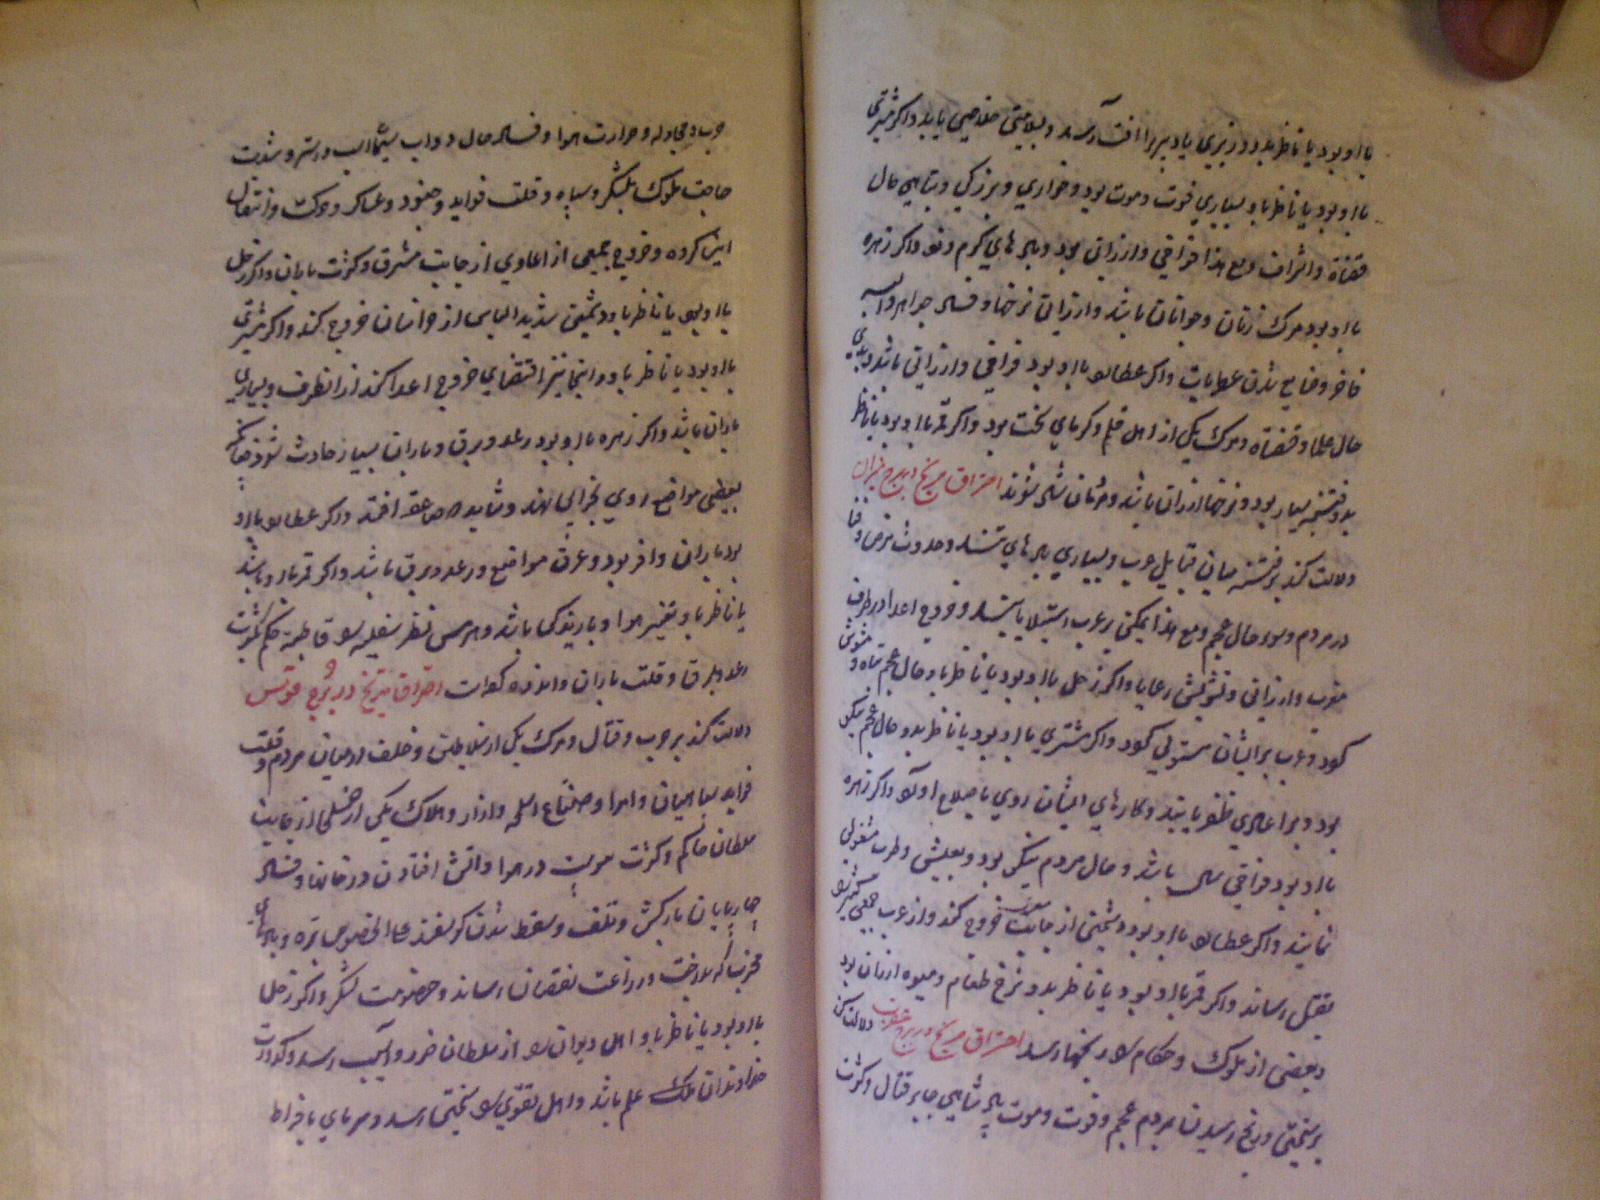 با او بود یا ناظر بدو وزیری یا دبیری را آفت رسد و بسلامتی خلاصی یابد و اگر مشتری
با او بود یا ناظر باو بسیاری فوت و موت بود و خواری و بزرگی و تباهی حال
قضاة و اشراف و مع هذا فراخی و ارزانی بود و بادهای گرم و تر و اگر زهره
با او بود مرگ زنان و جوانان باشد و ارزانی نرخها و فساد جواهر و
فاخر و ضایع شدن عطریات و اگر عطارد با او بود فراخی و ارزانی باشد و بدی
حال علما و قضاة و مرگ یکی از اهل قلم و گرمای سخت بود و اگر قمر با او بود یا ناظر
بدو فتنه بسیار بود و نرخها ارزان باشد و مردمان شاد شوند احتراق مریخ در برج میزان
دلالت کند بر فتنه میان قبایل عرب و بسیاری بادهای تند و حدوث مرض و فنا
در مردم و بد حال عجم و مع هذا یمکن بر عرب استیلا یابند و خروج اعدا در طرف
مغرب و ارزانی و تشویش رعایا و اگر زحل با او بود یا ناظر باو حال عجم تباه و مشوش
گردد و عرب بر ایشان مستولی گردد و اگر مشتری با او بود یا ناظر بدو حال عجم نیکو
بود و بر اعادی ظفر یابند و کارهای ایشان روی باصلاح آورد و اگر زهره
با او بود فراخی سال باشد و حال مردم نیکو بود و بعیش و طرب مشغولی
نمایند و اگر عطارد با او بود دشمنی از جانب خروج کند و از عرب جمعی کثیر را
بقتل رساند و اگر قمر با او بود یا ناظر بدو نرخ طعام و میوه ارزان بود
و بعضی از ملوک و حکام را رنجها رسد احتراق مریخ در برج عقرب دلالت کند
بر سختی و رنج رسیدن بمردم عجم و فوت و موت پادشاهی جابر قتال و کثرت
حرب و مجادله و حرارت هوا و فساد حال دواب سیما اسب و استر و شدت
حاجت ملوک بلشکر و سپاه و قلت فواید و جنود و عساکر و حرکت و انتقال
این گروه و خروج جمعی از اعادی از جانب مشرق و کثرت باران و اگر زحل
با او بود یا ناظر باو دشمنی شدید الباس از خراسان خروج کند و اگر مشتری
با او بود یا ناظر باو و اینجا نیز اقتضای خروج اعدا کند از آن طرف و بسیاری
باران باشد و اگر زهره با او بود رعد و برق و باران بسیار حادث شود چنانکه
بعضی مواضع روی بخرابی نهد و شاید که صاعقه افتد و اگر عطارد با او
بود باران وافر بود و غرق مواضع و رعد و برق باشد و اگر قمر با او باشد
یا ناظر باو تغیر هوا و بارندگیها باشد و بکثرت
رعد و برق و قلت باران و احتراق مریخ در برج قوس
دلالت کند بر حرب و قتال و مرگ یکی از سلاطین و خلف در میان مردم و قلت
فواید سپاهیان و امرا و صناع اسلحه و آزار و هلاک یکی از جانب
سلطان حاکم و کثرت در هوا و آتش افتادن در خانها و فساد
چارپایان بارکش و تلف و سقط شدن گوسفند علی الخصوص بره و بادهای
مخرب که بدرخت و زراعت نقصان رساند و خصومت لشکر و اگر زحل
با او بود یا ناظر باو اهل دیوان را از سلطان ضرر و آسیب رسد و کدورت
خداوندان ملک علم باشد و اهل تقوی را سختی رسد و سرمای بافراط